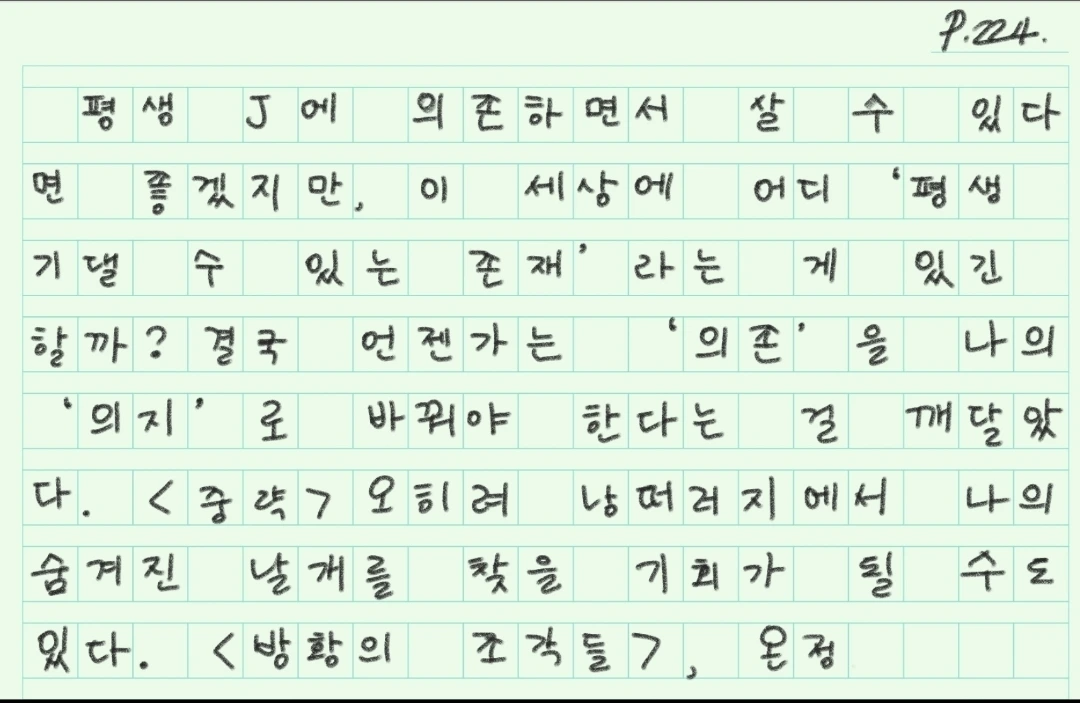 P.224.
평생 J에 의존하면서 살 수 있다
면 좋겠지만, 이 세상에 어디 '평생
기댈 수 있는 존재'라는 게 있긴
할까? 결국 언젠가는 '의존'을 나의
'의지'로 바꿔야 한다는 걸 깨달았
다. <중략> 오히려 낭떠러지에서 나의
숨겨진 날개를 찾을 기회가 될 수도
있다. <방황의 조각들>, 온정